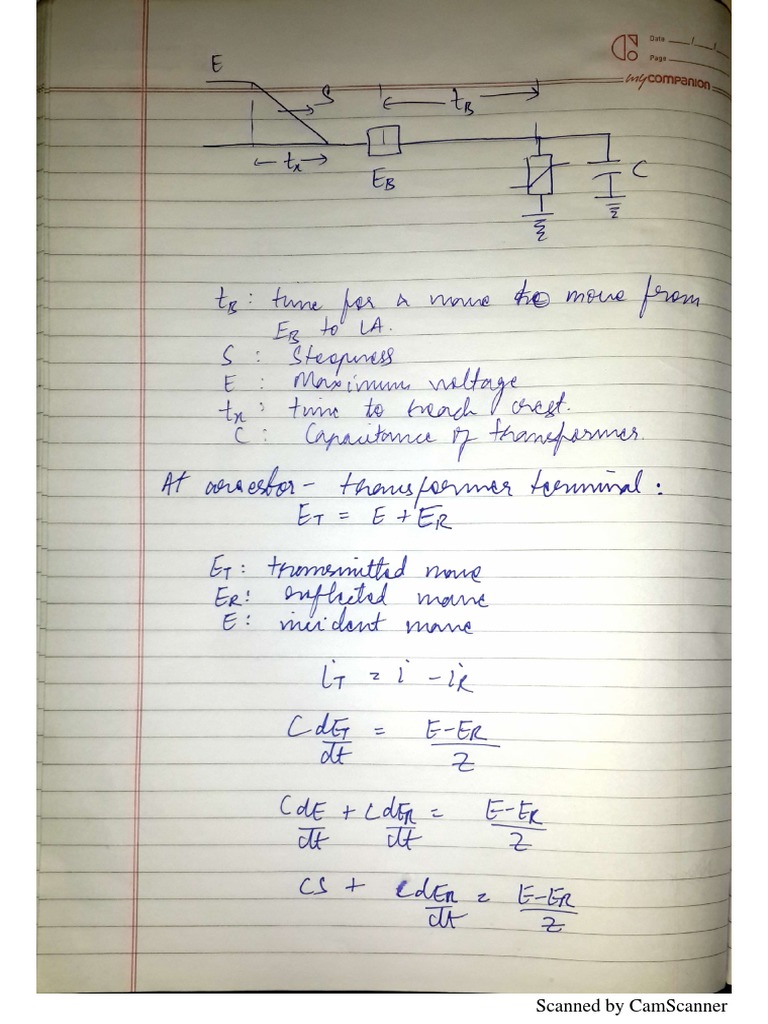 Date
Page
mycompanion
E
S
t_B
t_x
E_B
C
t_B : time for a wave to move from
E_B to LA.
S : Steepness
E : Maximum voltage
t_x : time to reach crest.
C : Capacitance of transformer.
At arrester - transformer terminal :
E_T = E + E_R
E_T : transmitted wave
E_R : reflected wave
E : incident wave
i_T = i - i_R
C dE_T/dt = (E - E_R)/Z
C dE/dt + C dE_R/dt = (E - E_R)/Z
CS + C dE_R/dt = (E - E_R)/Z
Scanned by CamScanner